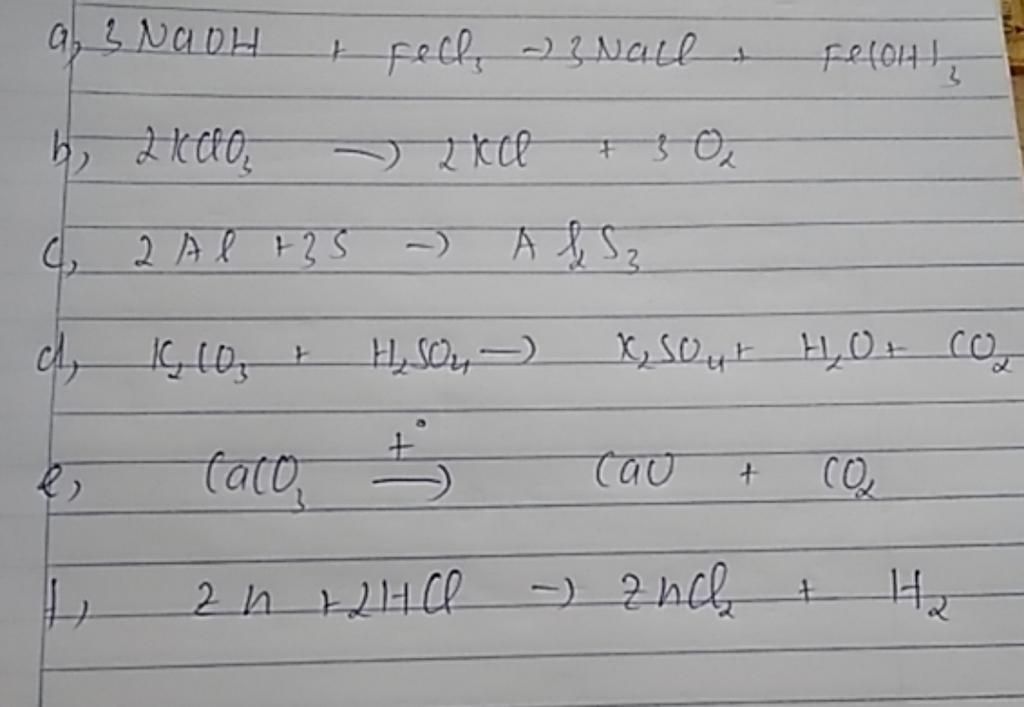 a, 3 NaOH + FeCl₃ → 3 NaCl + Fe(OH)₃
b, 2KClO₃ → 2KCl + 3 O₂
c, 2 Al + 3S → Al₂S₃
d, K₂CO₃ + H₂SO₄ → K₂SO₄ + H₂O + CO₂
e, CaCO₃ t° → CaO + CO₂
f, Zn + 2HCl → ZnCl₂ + H₂